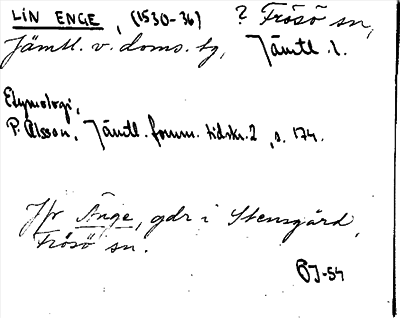 LIN ENGE, (1530-36) ? Frösö sn,
Jämtl. v. doms. tg, Jämtl. l.
Etymologi,
P. Olsson, Jämtl. fornm. tidskr. 2, s. 174.
Jfr Änge, gdr i Stensgärd,
Frösö sn.
BJ-54